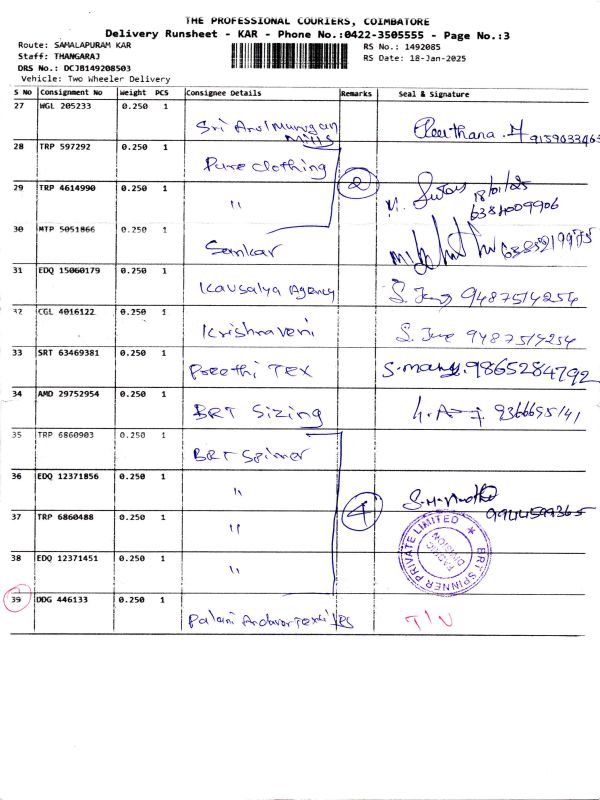 THE PROFESSIONAL COURIERS, COIMBATORE
Delivery Runsheet - KAR - Phone No.:0422-3505555 - Page No.:3
Route: SAMALAPURAM KAR
RS No.: 1492085
Staff: THANGARAJ
RS Date: 18-Jan-2025
DRS No.: DCJB149208503
Vehicle: Two Wheeler Delivery
S No Consignment No Weight PCS Consignee Details Remarks Seal & Signature
27 WGL 205233 0.250 1 Sri Arul Murugan Mills 9159033463
28 TRP 597292 0.250 1 Pure Clothing
29 TRP 4614990 0.250 1 " 2 18/01/25
6384009906
30 MTP 5051866 0.250 1 Sankar
31 EDQ 15060179 0.250 1 Kausalya Agency 9487514254
32 CGL 4016122 0.250 1 Krishnaveni 9487514254
33 SRT 63469381 0.250 1 Preethi TEX S.many. 9865284792
34 AMD 29752954 0.250 1 BRT Sizing 9366695141
35 TRP 6860903 0.250 1 BRT Spinner
36 EDQ 12371856 0.250 1 " 4
37 TRP 6860488 0.250 1 " 9944599365
38 EDQ 12371451 0.250 1 " BRT SPINNER PRIVATE LIMITED
DIVISION
39 DDG 446133 0.250 1 Palani Andavar Textiles T/N